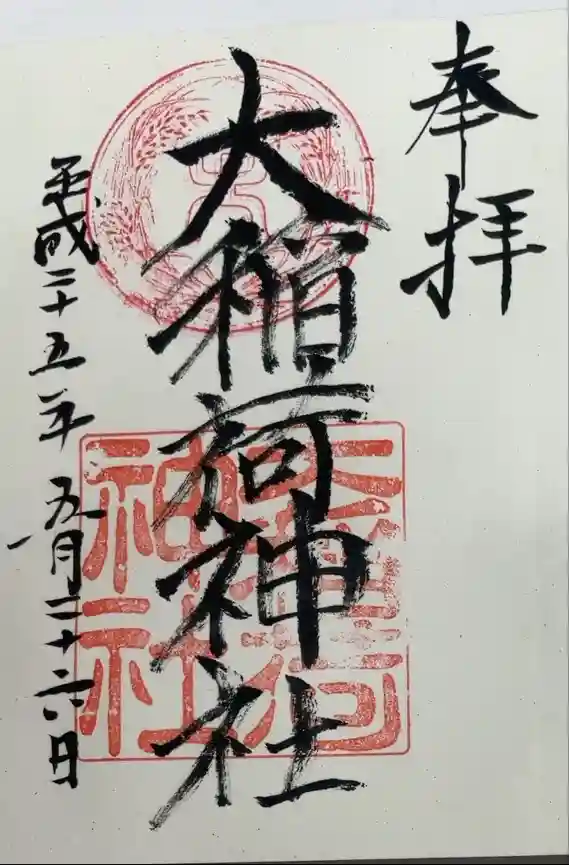 奉拝
大稲荷神社
大稲荷
神社
平成二十五年五月二十六日